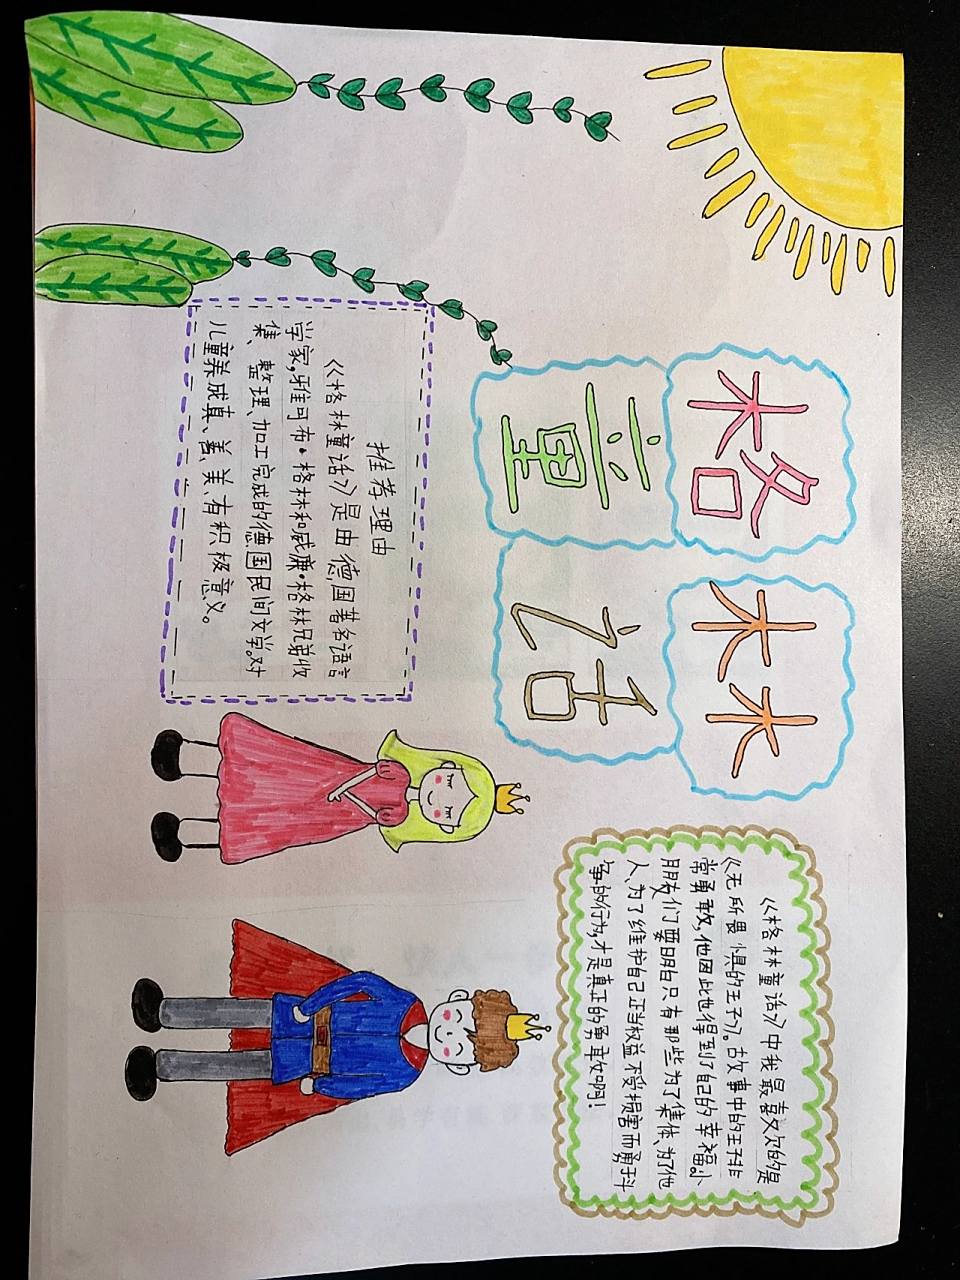 格林
童话
推荐理由
《格林童话》是由德国著名语言
学家,雅可布·格林和威廉·格林兄弟收
集、整理、加工完成的德国民间文学。对
儿童养成真、善、美、有积极意义。
《格林童话》中我最喜欢的是
《无所畏惧的王子》。故事中的王子非
常勇敢,他因此也得到了自己的幸福。小
朋友们要明白只有那些为了集体、为了他
人、为了维护自己正当权益不受损害而勇于斗
争的行为,才是真正的勇敢啊!